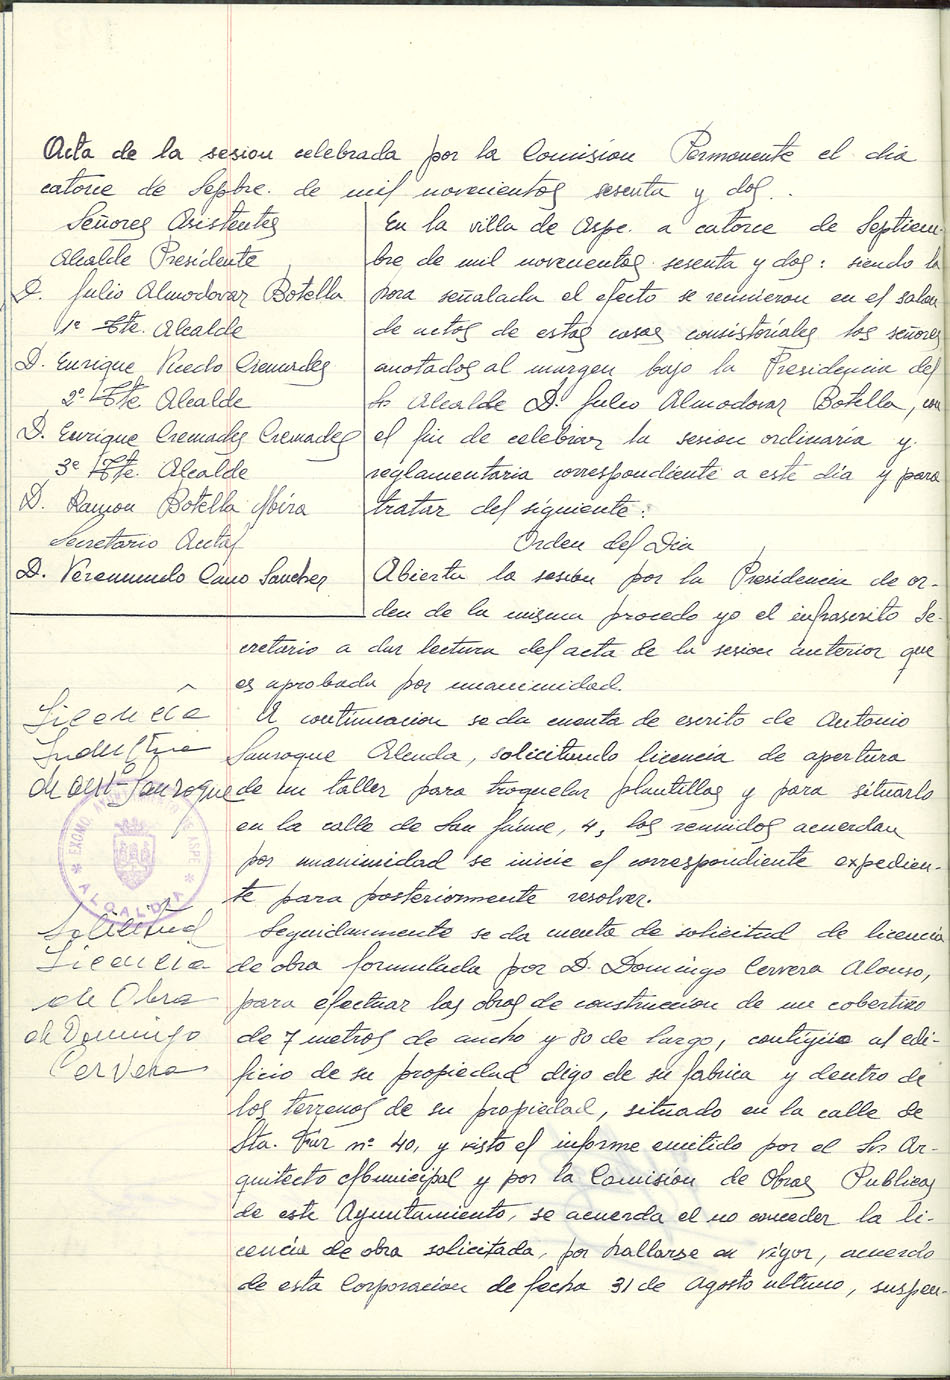 Acta de la sesion celebrada por la Comision Permanente el dia
catorce de Sepbre. de mil novecientos sesenta y dos.
Señores Asistentes
Alcalde Presidente
D. Julio Almodovar Botella
1º Tte. Alcalde
D. Enrique Pucedo Cremades
2º Tte. Alcalde
D. Enrique Cremades Cremades
3º Tte. Alcalde
D. Ramon Botella Mira
Secretario Actal
D. Veremundo Cano Sanchez
En la villa de Aspe. a catorce de Septiem-
bre de mil novecientos sesenta y dos: siendo la
hora señalada el efecto se reunieron en el salon
de actos de estas casas consistoriales los señores
anotados al margen bajo la Presidencia del
Sr. Alcalde D. Julio Almodovar Botella, con
el fin de celebrar la sesion ordinaria y
reglamentaria correspondiente a este dia y para
tratar del siguiente:
Orden del Dia
Abierta la sesion por la Presidencia de or-
den de la misma procedo yo el infrascrito Se-
cretario a dar lectura del acta de la sesion anterior que
es aprobada por unanimidad.
Licencia
Industria
de Antº Sanroque
A continuacion se da cuenta de escrito de Antonio
Sanroque Alenda, solicitando licencia de apertura
de un taller para troquelar plantillas y para situarlo
en la calle de San Jaime, 4, los reunidos acuerdan
por unanimidad se inicie el correspondiente expedien-
te para posteriormente resolver.
EXCMO. AYUNTAMIENTO DE ASPE
* ALCALDIA *
Solicitud
Licencia
de Obra
de Domingo
Cervera
Seguidamente se da cuenta de solicitud de licencia
de obra formulada por D. Domingo Cervera Alonso,
para efectuar las obras de construccion de un cobertizo
de 7 metros de ancho y 80 de largo, contiguo al edi-
ficio de su propiedad digo de su fabrica y dentro de
los terrenos de su propiedad, situado en la calle de
Sta. Faz nº 40, y visto el informe emitido por el Sr. Ar-
quitecto Municipal y por la Comisión de Obras Publicas
de este Ayuntamiento, se acuerda el no conceder la li-
cencia de obra solicitada, por hallarse en vigor, acuerdo
de esta Corporacion de fecha 31 de Agosto ultimo, suspen-